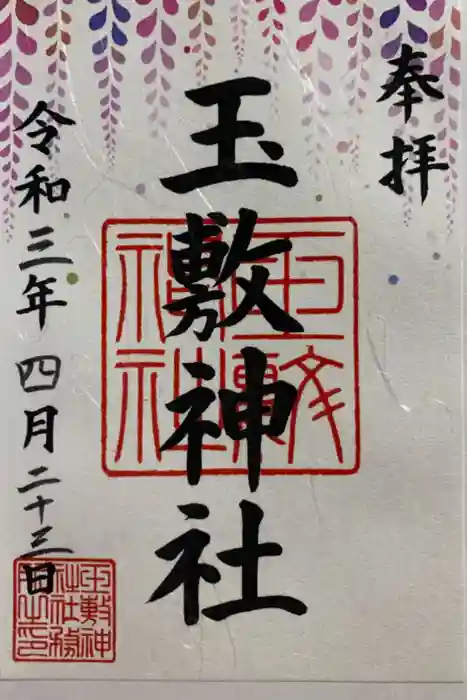 奉拝
玉敷神社
玉敷神社
令和三年四月二十三日
玉敷神社社務所之印